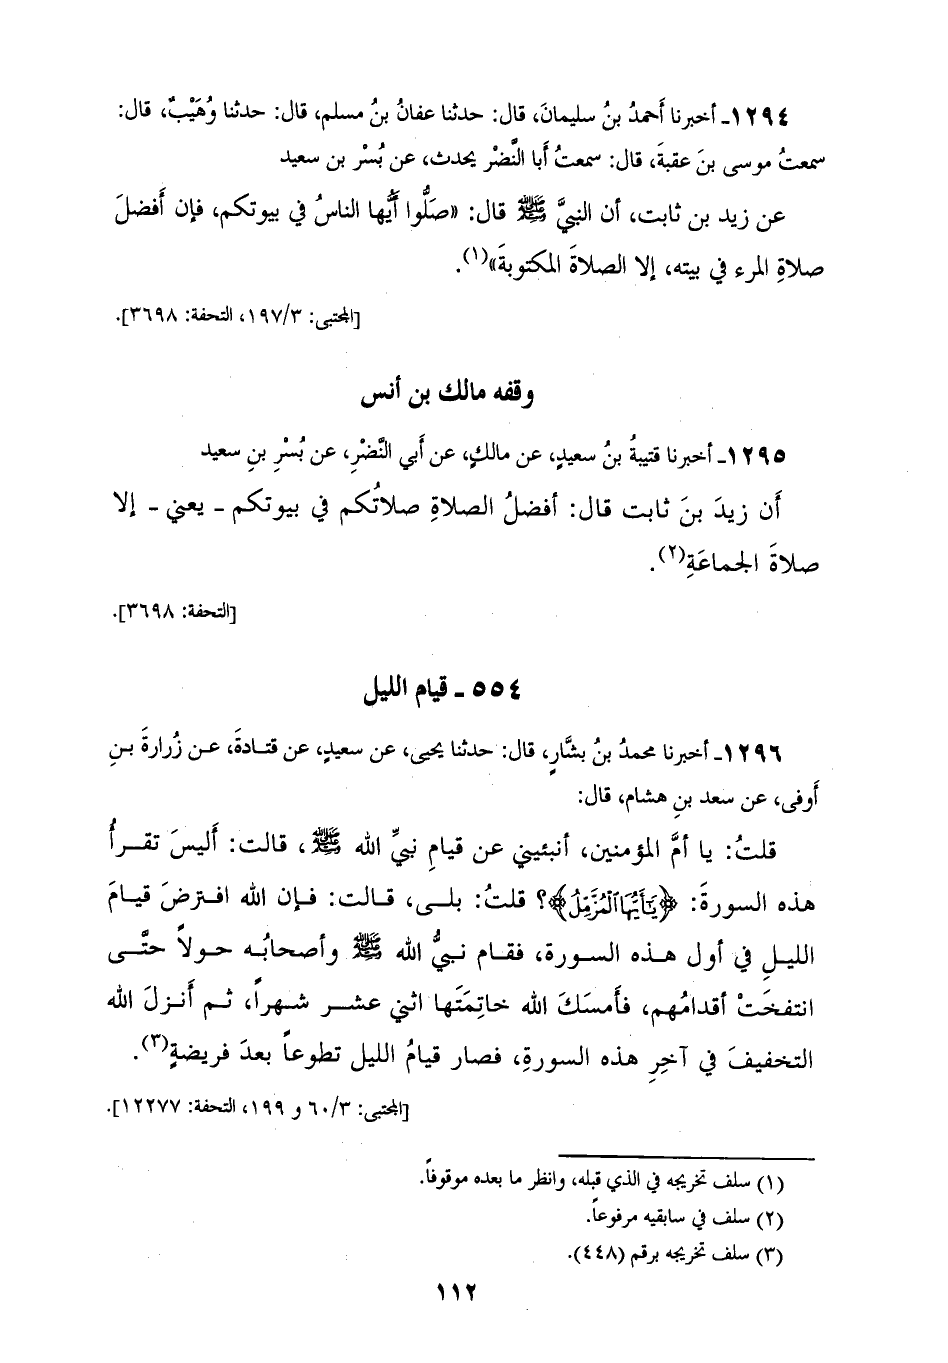 ١٢٩٤ـ أخبرنا أحمدُ بنُ سليمانَ، قال: حدثنا عفانُ بنُ مسلم، قال: حدثنا وُهَيْبٌ، قال:
سمعتُ موسى بنَ عقبةَ، قال: سمعتُ أبا النَّضْر يحدث، عن بُسْر بن سعيد
عن زيد بن ثابت، أن النبيَّ ﷺ قال: «صَلُّوا أَيُّها الناسُ في بيوتكم، فإن أَفضلَ
صلاةِ المرء في بيته، إلا الصلاةَ المكتوبةَ»(١).
[المجتبى: ١٩٧/٣، التحفة: ٣٦٩٨].
وقفه مالك بن أنس
١٢٩٥ـ أخبرنا قتيبةُ بنُ سعيدٍ، عن مالكٍ، عن أَبي النَّضْرِ، عن بُسْرِ بنِ سعيد
أَن زيدَ بنَ ثابت قال: أفضلُ الصلاةِ صلاتُكم في بيوتكم ـ يعني ـ إلا
صلاةَ الجماعَةِ(٢).
[التحفة: ٣٦٩٨].
٥٥٤ ـ قيام الليل
١٢٩٦ـ أخبرنا محمدُ بنُ بشَّارٍ، قال: حدثنا يحيى، عن سعيدٍ، عن قتادةَ، عن زُرارةَ بنِ
أَوفى، عن سعد بنِ هشام، قال:
قلتُ: يا أمَّ المؤمنين، أنبئيني عن قيامِ نبيِّ الله ﷺ، قالت: أَليسَ تقرأُ
هذه السورةَ: ﴿يَٰٓأَيُّهَا ٱلْمُزَّمِّلُ﴾؟ قلتُ: بلى، قالت: فإن الله افترضَ قيامَ
الليلِ في أول هذه السورة، فقام نبيُّ الله ﷺ وأصحابُه حولاً حتَّى
انتفخَتْ أقدامُهم، فأَمسَكَ الله خاتِمَتَها اثني عشر شهراً، ثم أَنزلَ الله
التخفيفَ في آخِرِ هذه السورةِ، فصار قيامُ الليل تطوعاً بعدَ فريضةٍ(٣).
[المجتبى: ٦٠/٣ و ١٩٩، التحفة: ١٢٢٧٧].
(١) سلف تخريجه في الذي قبله، وانظر ما بعده موقوفاً.
(٢) سلف في سابقيه مرفوعاً.
(٣) سلف تخريجه برقم (٤٤٨).
١١٢